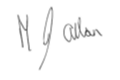 M J Allan